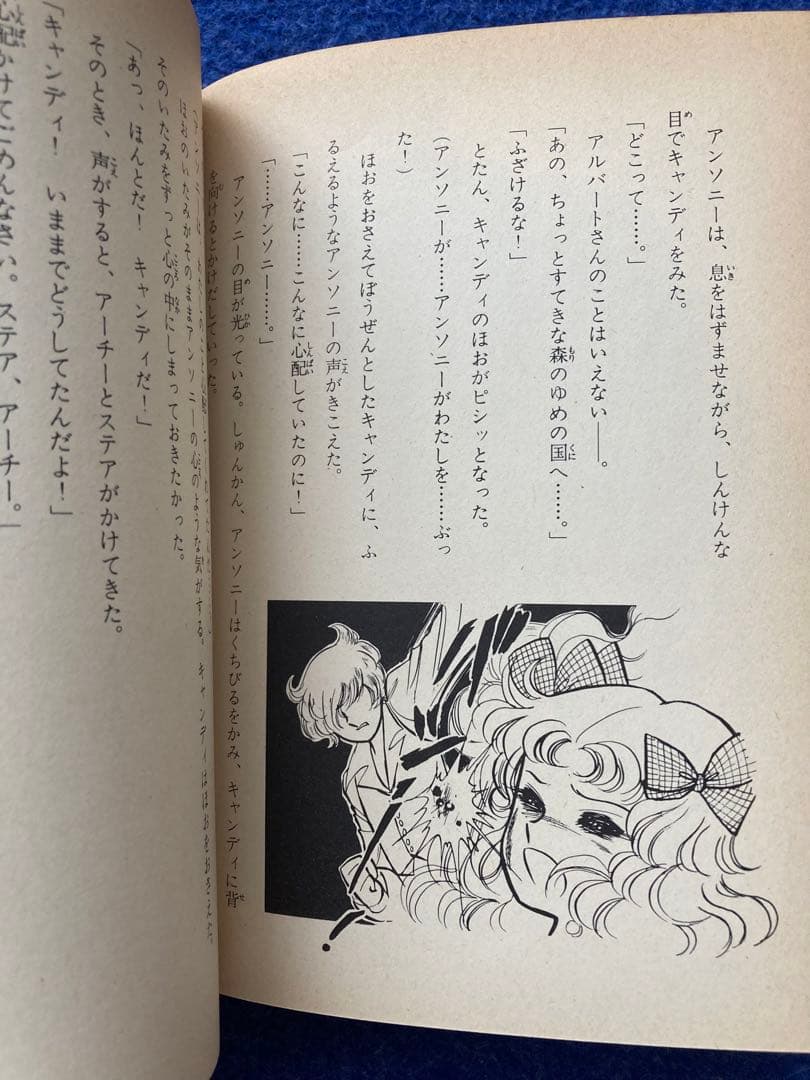 アンソニーは、息をはずませながら、しんけんな
目でキャンディをみた。
「どこって……。」
アルバートさんのことはいえない――。
「あの、ちょっとすてきな森のゆめの国へ……。」
「ふざけるな！」
とたん、キャンディのほおがピシッとなった。
(アンソニーが……アンソニーがわたしを……ぶっ
た！)
ほおをおさえてぼうぜんとしたキャンディに、ふ
るえるようなアンソニーの声がきこえた。
「こんなに……こんなに心配していたのに！」
「……アンソニー……。」
アンソニーの目が光っている。しゅんかん、アンソニーはくちびるをかみ、キャンディに背
を向けるとかけだしていった。
ほおのいたみがそのままアンソニーの心のような気がする。キャンディはほおをおさえた。
そのいたみをずっと心の中にしまっておきたかった。
「あっ、ほんとだ！　キャンディだ！」
そのとき、声がすると、アーチーとステアがかけてきた。
「キャンディ！　いままでどうしてたんだよ！」
心配かけてごめんなさい。ステア、アーチー。」